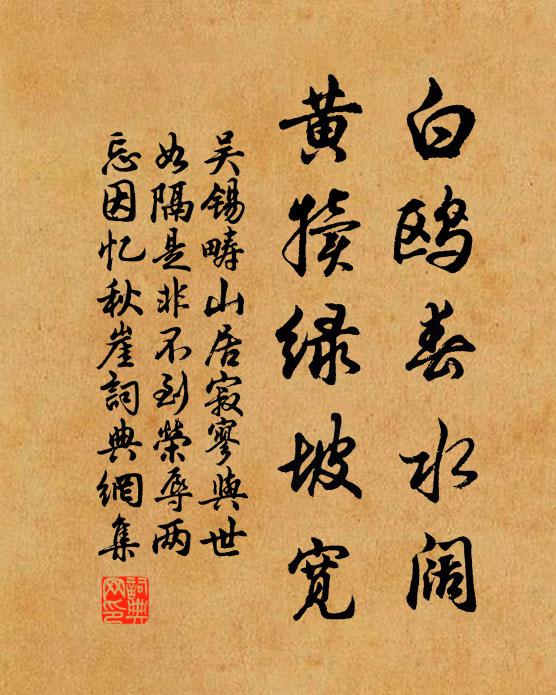 白鸥春水阔
黄犊绿坡宽
吴锡畴山居寂寥与世
如隔是非不到荣辱两
忘因忆秋崖詞典網集
詞典
网印